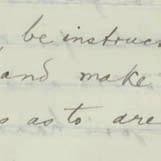 , be instruc
and make
s as to are